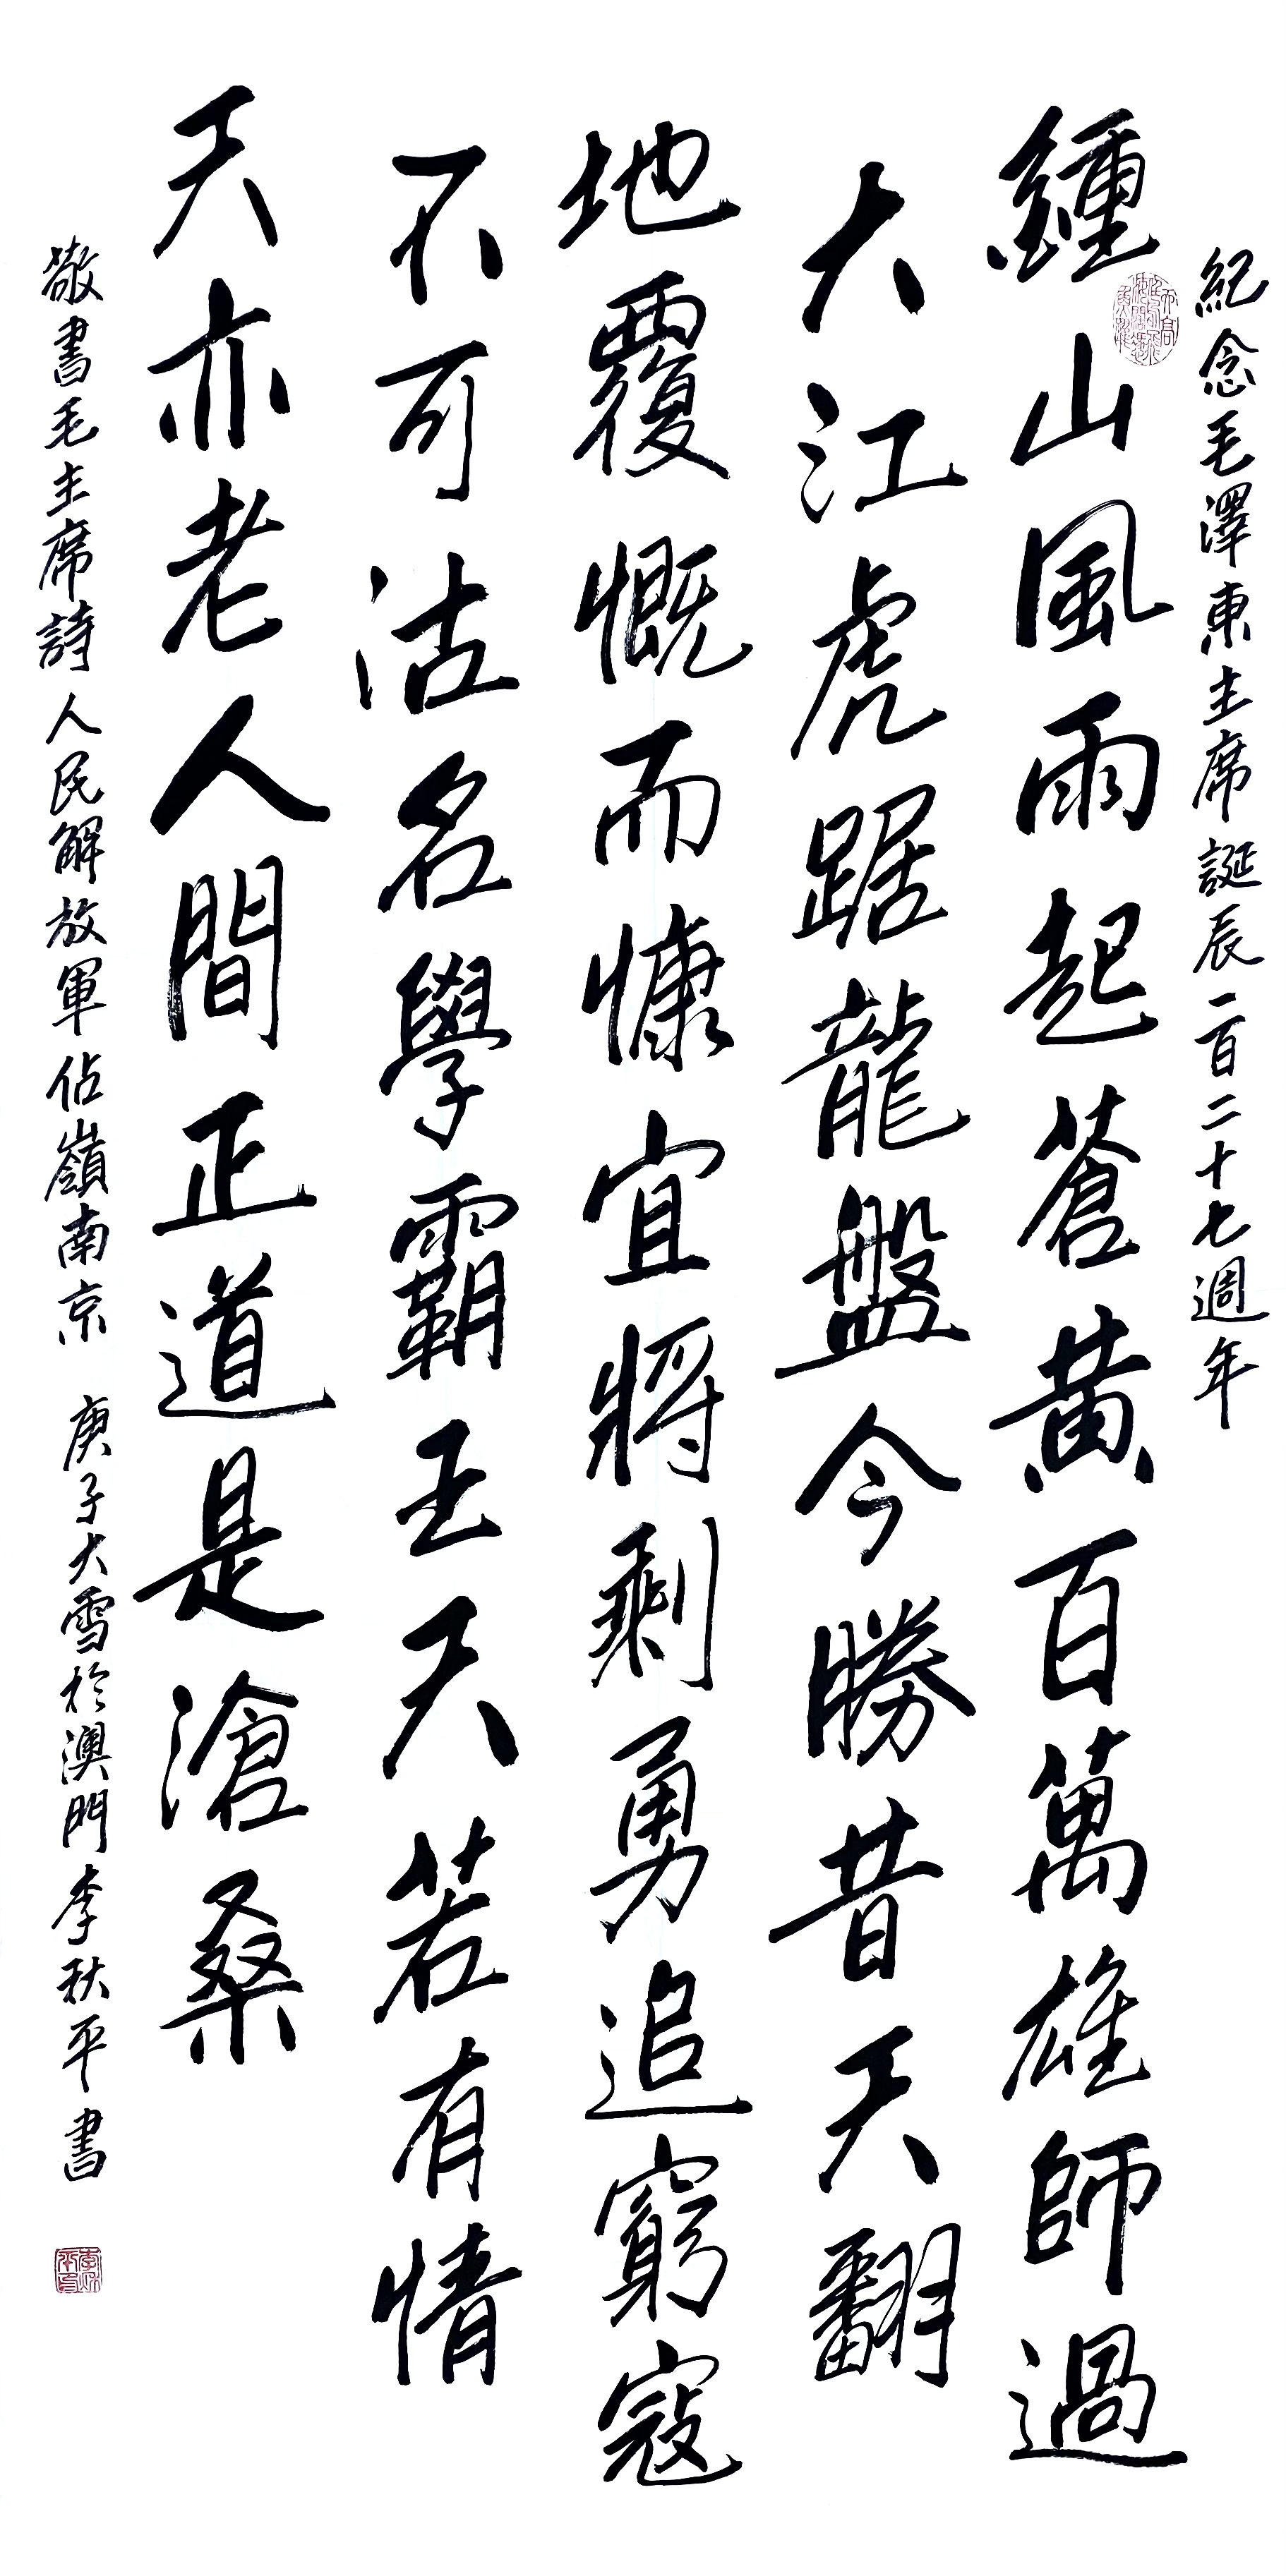 紀念毛澤東主席誕辰一百二十七週年
鍾山風雨起蒼黃百萬雄師過
大江虎踞龍盤今勝昔天翻
地覆慨而慷宜將剩勇追窮寇
不可沽名學霸王天若有情
天亦老人間正道是滄桑
敬書毛主席詩人民解放軍佔嶺南京 庚子大雪於澳門李秋平書